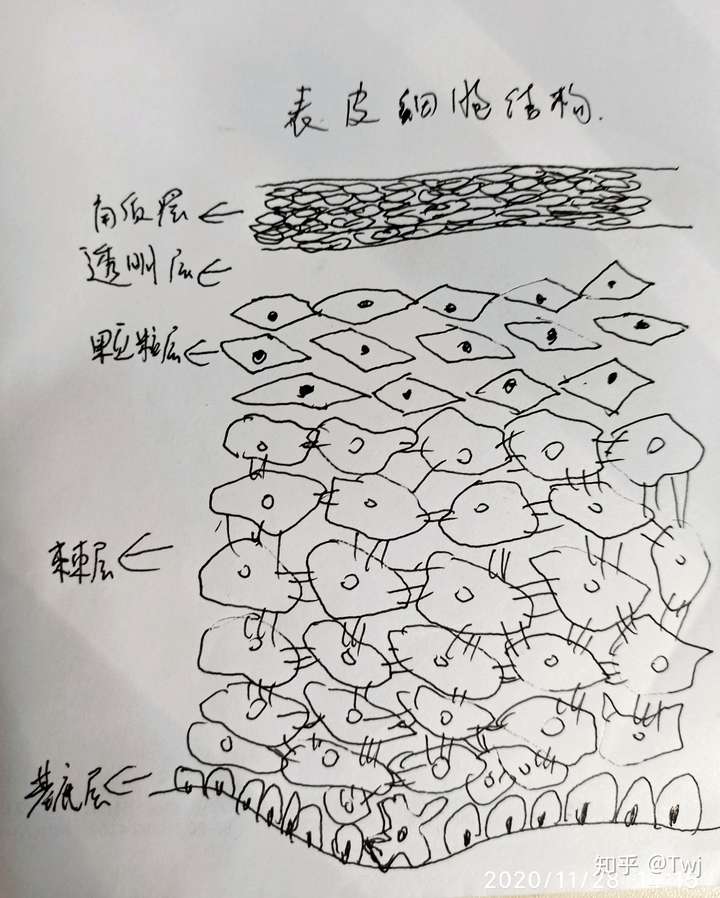 表皮细胞结构.
角质层
透明层
颗粒层
棘层
基底层
知乎 @Twj